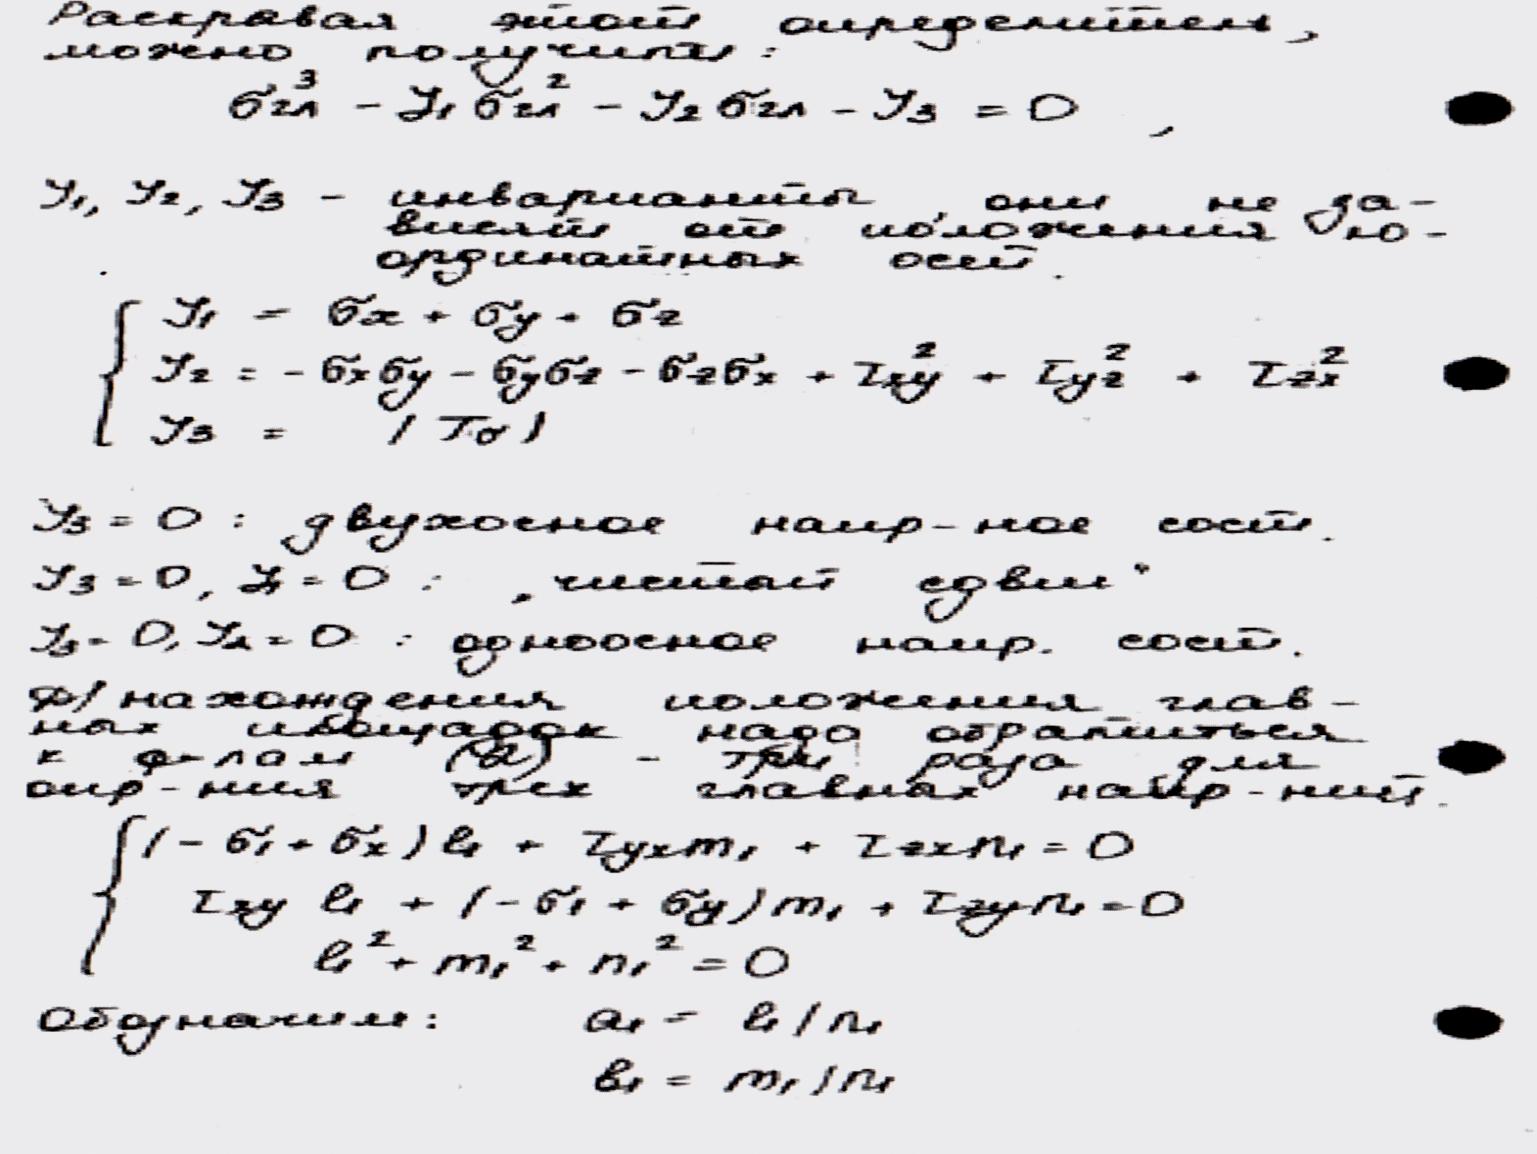 Раскрывая этот определитель,
можно получить:
σгл³ - J₁ σгл² - J₂ σгл - J₃ = 0 ,
J₁, J₂, J₃ - инварианты, они не за-
висят от положения ко-
ординатных осей.
J₁ = σx + σy + σz
J₂ = - σxσy - σyσz - σzσx + τxy² + τyz² + τzx²
J₃ = |Tσ|
J₃ = 0 : двухосное напр-ное сост.
J₃ = 0, J₁ = 0 : „чистый сдвиг"
J₃ = 0, J₂ = 0 : одноосное напр. сост.
Д/нахождения положения глав-
ных площадок надо обратиться
к ф-лам (2) - три раза для
опр-ния трех главных напр-ний.
(-σ₁ + σx) l₁ + τyx m₁ + τzx n₁ = 0
τxy l₁ + (-σ₁ + σy) m₁ + τzy n₁ = 0
l₁² + m₁² + n₁² = 0
Обозначим: a₁ = l₁ / n₁
b₁ = m₁ / n₁